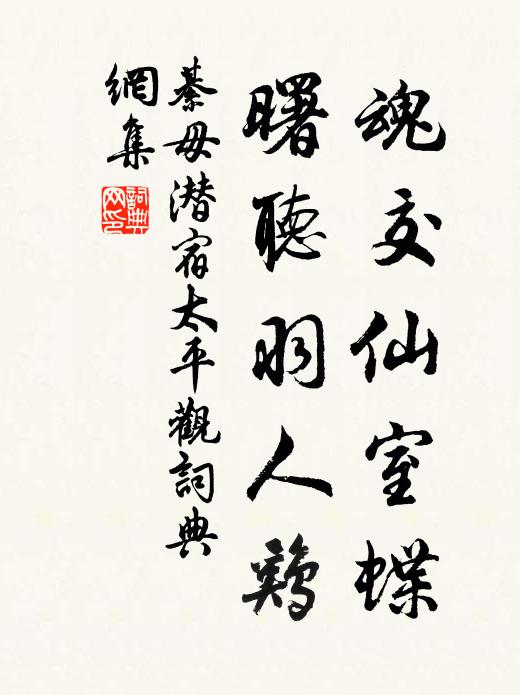 魂交仙室蝶
曙聽羽人鷄
綦毋潜宿太平觀詞典
網集
詞典
网印